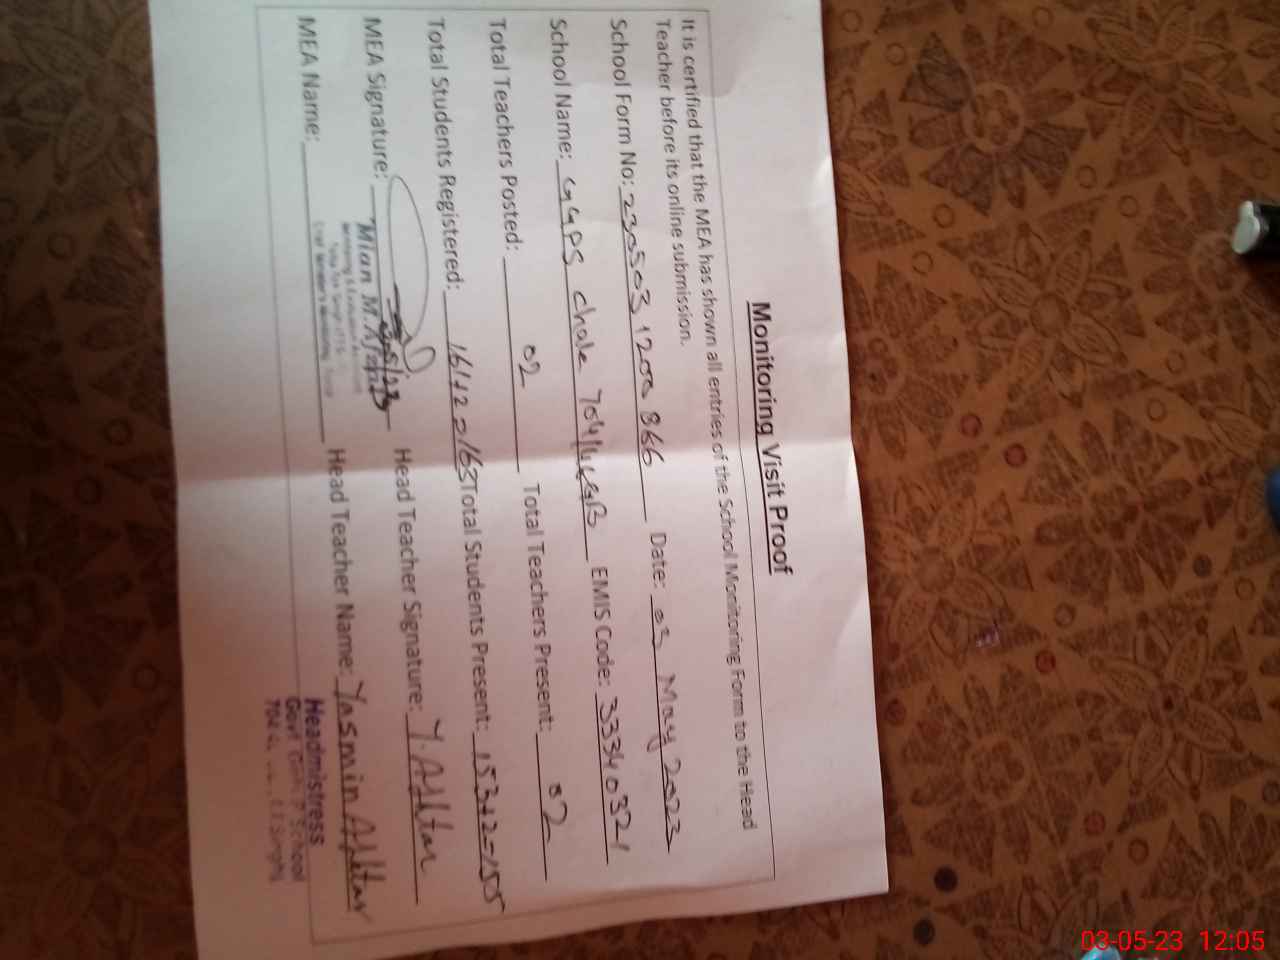 Monitoring Visit Proof
It is certified that the MEA has shown all entries of the School Monitoring Form to the Head
Teacher before its online submission.
School Form No: 230503 1200 866 Date: 03 May 2023
School Name: GGPS chak 704/ GB EMIS Code: 33340321
Total Teachers Posted: 02 Total Teachers Present: 02
Total Students Registered: Total Students Present: 153+2=155
MEA Signature: Head Teacher Signature: Y. Akhtar
Mian M.
MEA Name: Head Teacher Name: Yasmin Akhtar
Headmistress
Govt. Girls P School
704
03-05-23 12:05